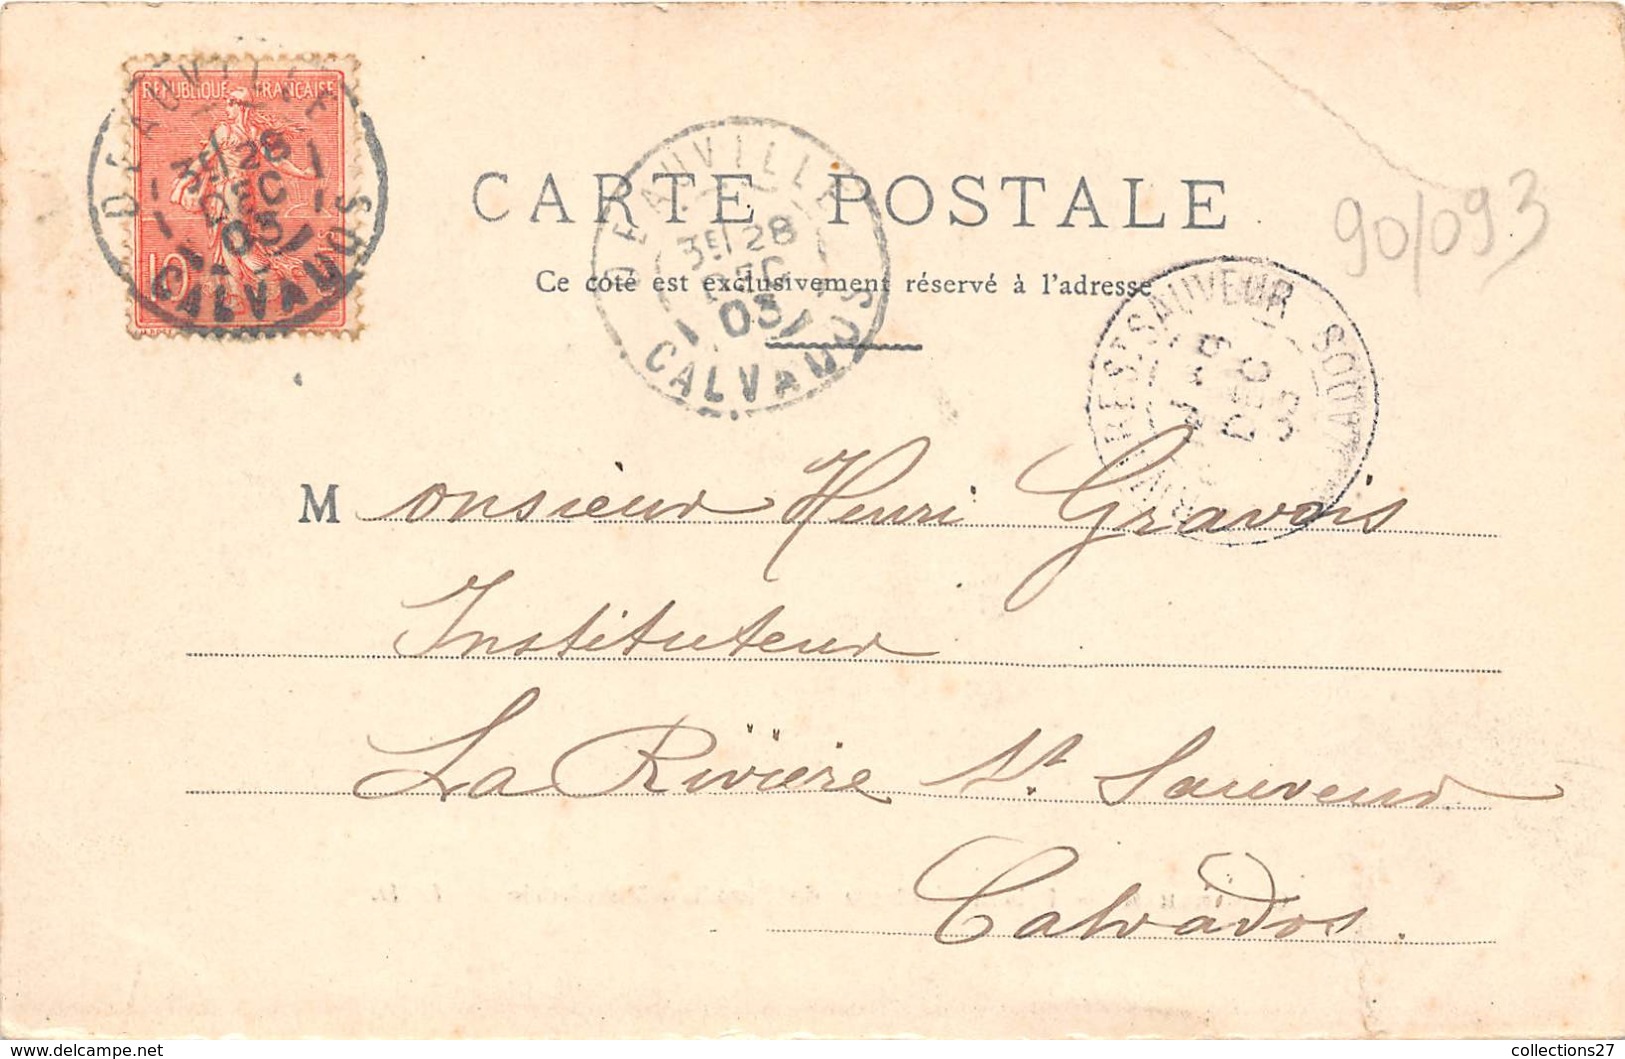 RÉPUBLIQUE FRANÇAISE
10
DEAUVILLE
3E/28
DEC
03
CALVADOS
CARTE POSTALE
DEAUVILLE
3E/28
DEC
03
CALVADOS
90/093
Ce côté est exclusivement réservé à l'adresse
RIVIERE ST SAUVEUR CALVADOS
DEC
03
Monsieur Henri Gravois
Instituteur
La Rivière St. Sauveur
Calvados.
collections27